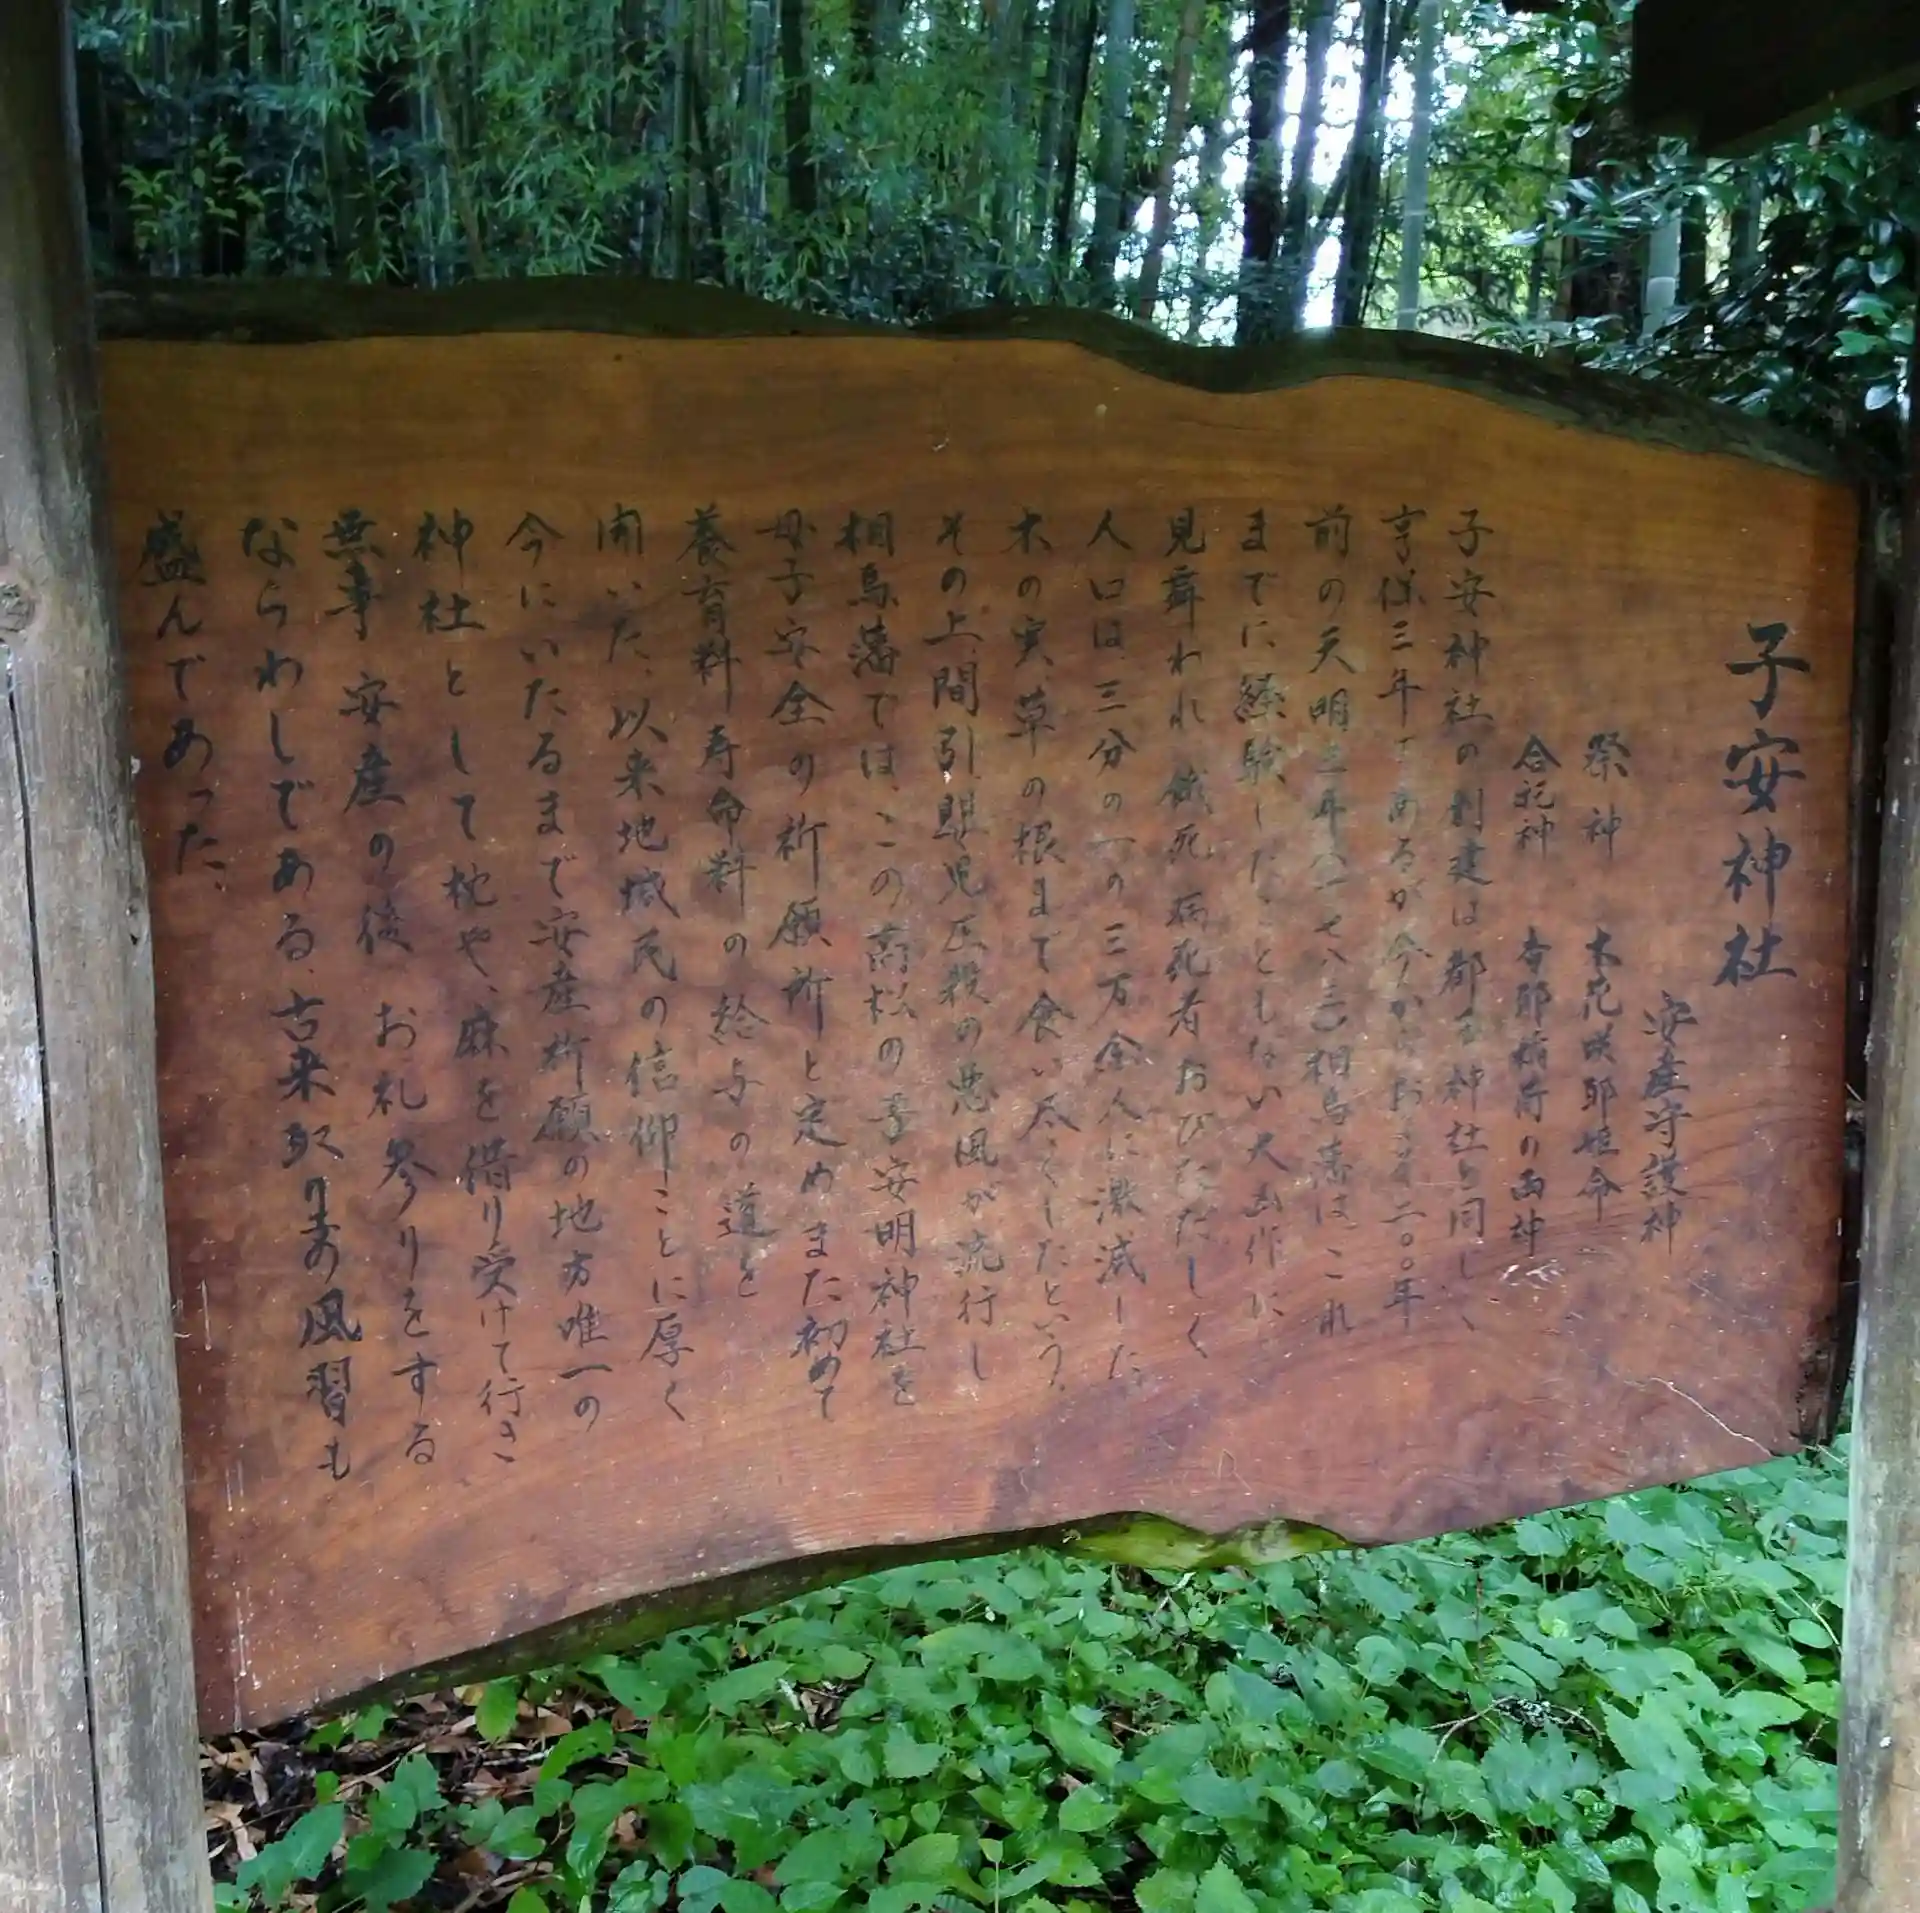 子安神社
安産守護神
祭神 木花咲耶姫命
合祀神 香耶稲荷の両神
子安神社の創建は都玉神社と同じく、
享保三年であるが今からおよそ二〇〇年
前の天明三年(一七八三)相馬藩は、これ
までに経験したこともない大凶作に
見舞われ餓死病死者おびただしく
人口は、三分の一の三万余人に激減した
木の実、草の根まで食い尽くしたという、
その上、間引、堕児圧殺の悪風が流行し
相馬藩では、この高松の子安明神社を
母子安全の祈願所と定めまた初めて
養育料寿命料の給与の道を
開いた、以来地域民の信仰ことに厚く
今にいたるまで安産祈願の地方唯一の
神社として枕や、麻を借り受けて行き
無事安産の後 お礼参りをする
ならわしである、古来取り子の風習も
盛んであった、